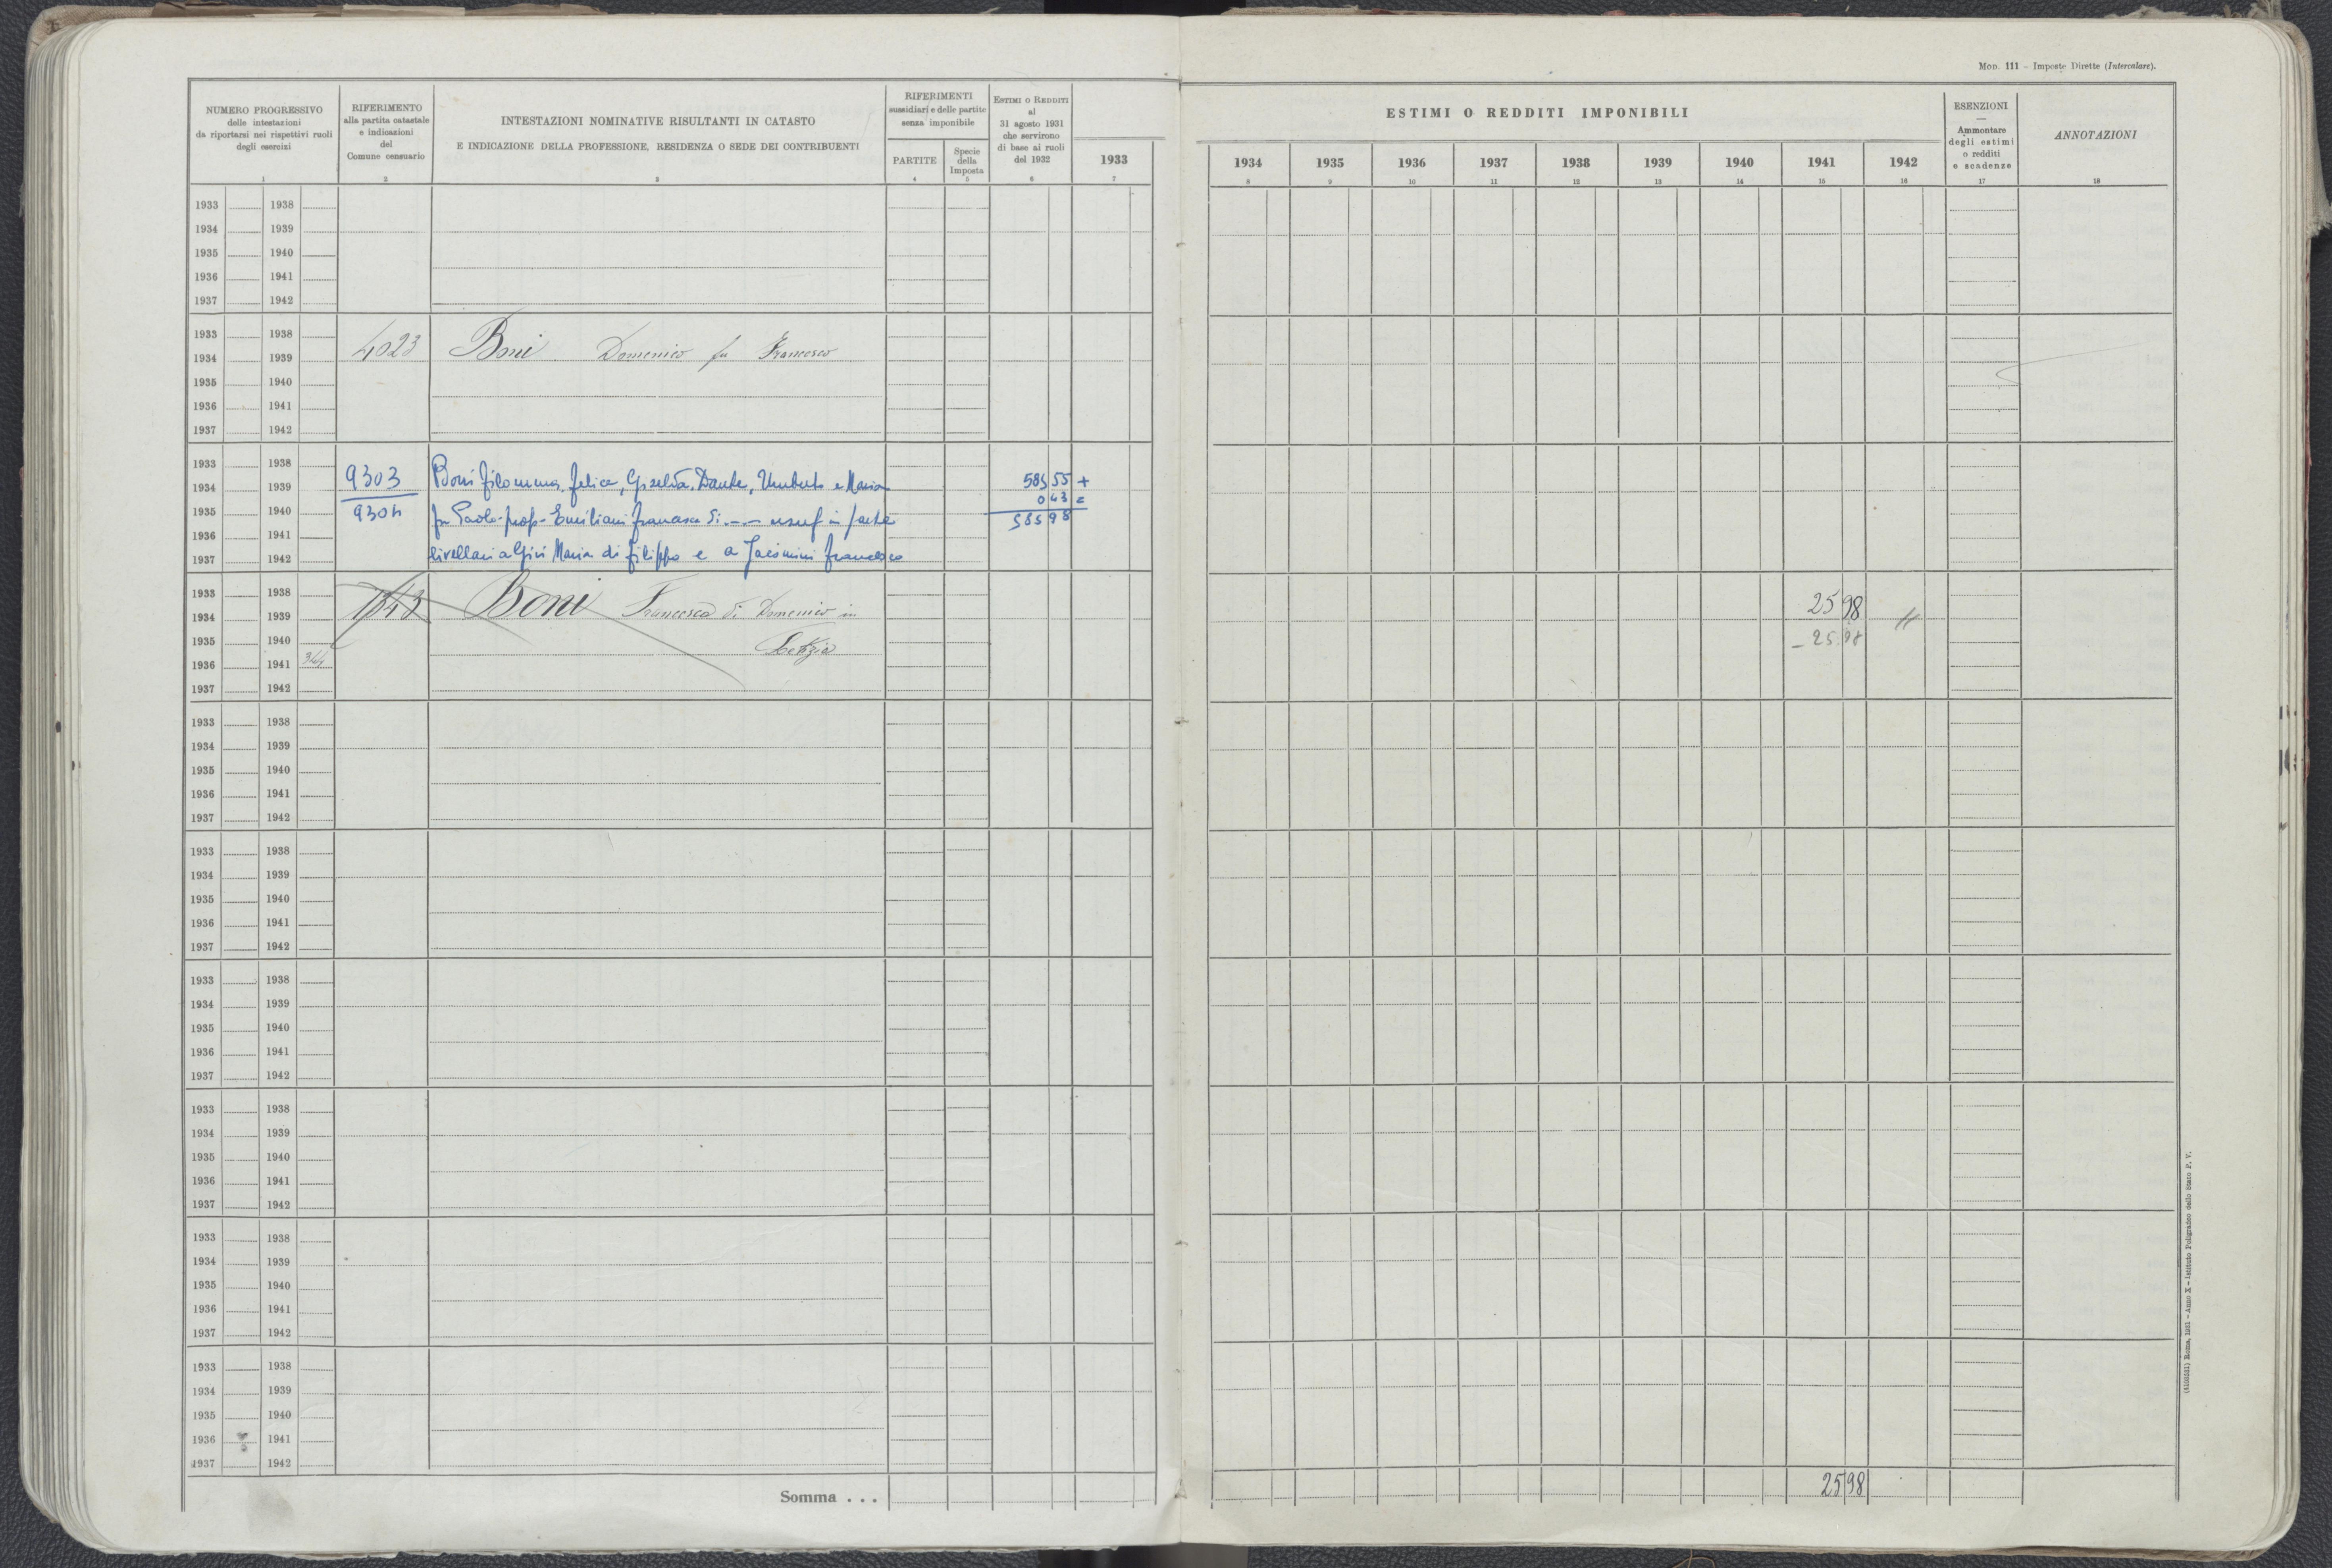 MOD. 111 – Imposte Dirette (Intercalare).
NUMERO PROGRESSIVO
delle intestazioni
da riportarsi nei rispettivi ruoli
degli esercizi
1
RIFERIMENTO
alla partita catastale
e indicazioni
del
Comune censuario
2
INTESTAZIONI NOMINATIVE RISULTANTI IN CATASTO
E INDICAZIONE DELLA PROFESSIONE, RESIDENZA O SEDE DEI CONTRIBUENTI
3
RIFERIMENTI
sussidiari e delle partite
senza imponibile
PARTITE
4
Specie
della
Imposta
5
ESTIMI O REDDITI
al
31 agosto 1931
che servirono
di base ai ruoli
del 1932
6
1933
7
ESTIMI O REDDITI IMPONIBILI
1934 1935 1936 1937 1938 1939 1940 1941 1942
8 9 10 11 12 13 14 15 16
ESENZIONI
—
Ammontare
degli estimi
o redditi
e scadenze
17
ANNOTAZIONI
18
1933 1938
1934 1939
1935 1940
1936 1941
1937 1942
1933 1938
1934 1939 4023 Boni Domenico fu Francesco
1935 1940
1936 1941
1937 1942
1933 1938
1934 1939 9303 Boni Filomena, Felice, Griselda, Dante, Umberto e Maria 585 55 +
0 43 =
1935 1940 9304 fu Paolo-prop- Emiliani Francesca di -- usuf in parte 585 98
1936 1941
1937 1942 livellari a Gini Maria di Filippo e a Francesco
1933 1938
1934 1939 7343 Boni Francesca di Domenico in 25 98 "
1935 1940 Letizia – 25.98
1936 1941 344
1937 1942
1933 1938
1934 1939
1935 1940
1936 1941
1937 1942
1933 1938
1934 1939
1935 1940
1936 1941
1937 1942
1933 1938
1934 1939
1935 1940
1936 1941
1937 1942
1933 1938
1934 1939
1935 1940
1936 1941
1937 1942
1933 1938
1934 1939
1935 1940
1936 1941
1937 1942
1933 1938
1934 1939
1935 1940
1936 1941
1937 1942
Somma . . . 25 98
(4103531) Roma, 1931 – Anno X – Istituto Poligrafico dello Stato P. V.